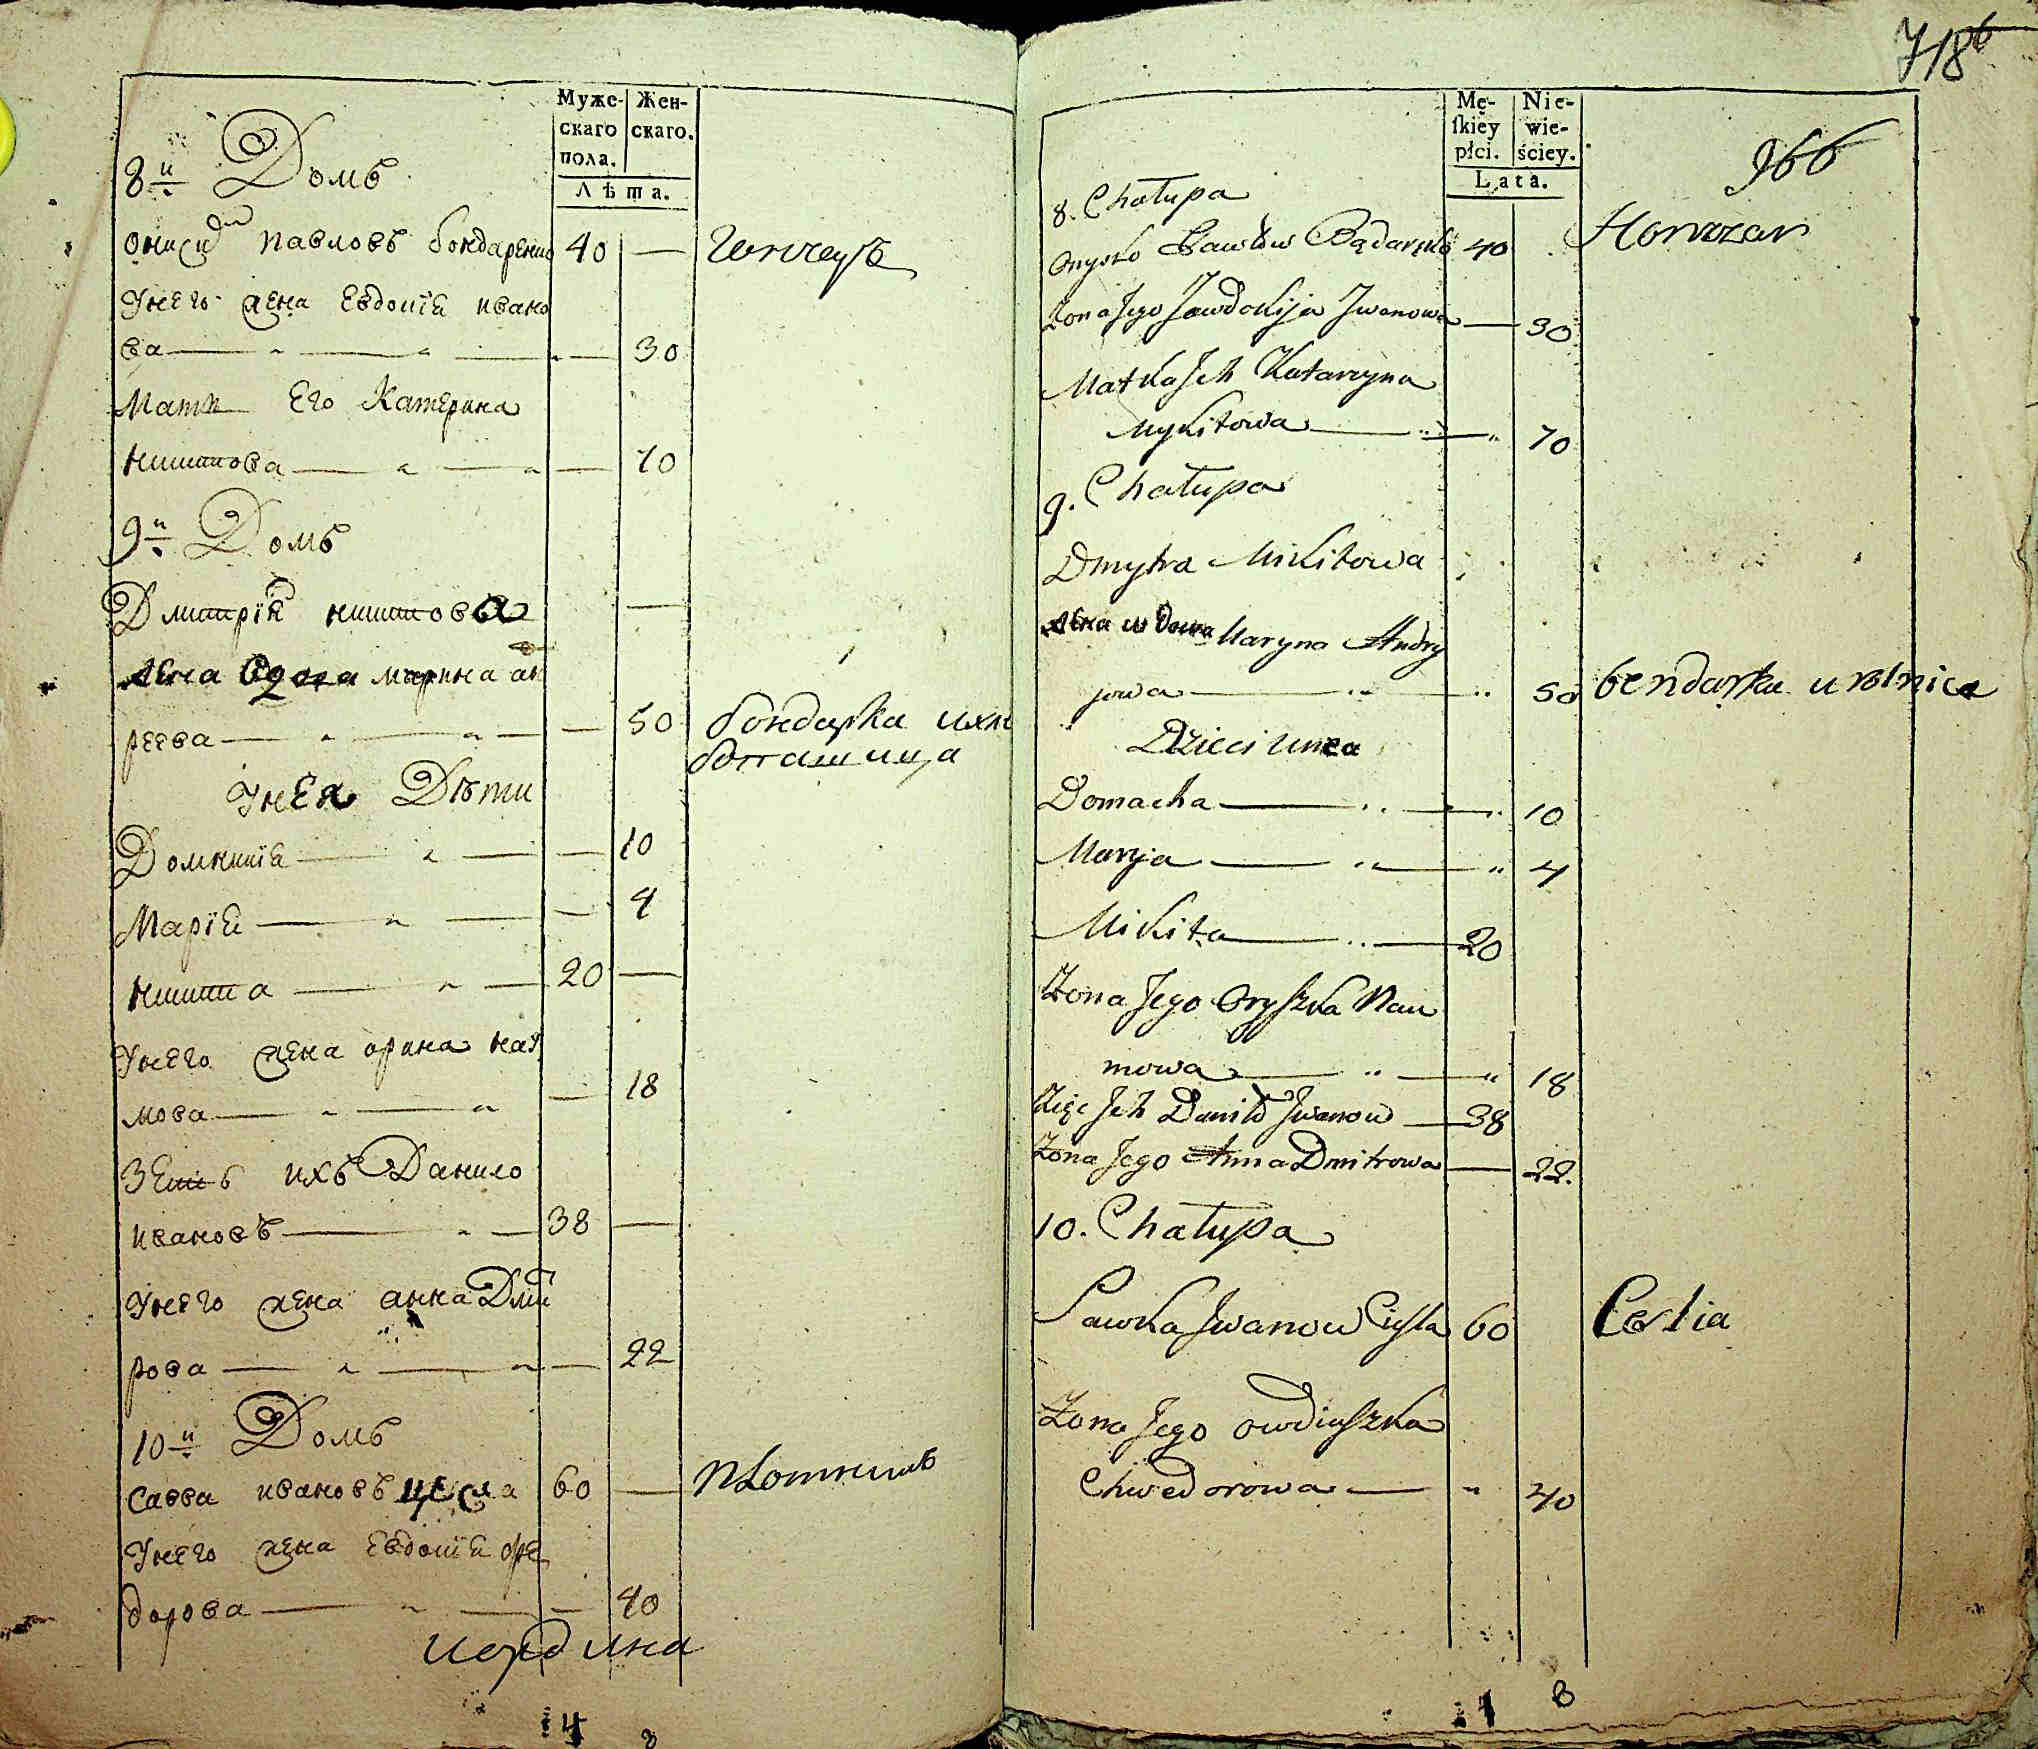 Муже-
скаго
пола.
Жен-
скаго.
Лѣта.
8й Домъ
Онисим Павловъ бондаренко 40 —
Гончаръ
Унего жена Евдокїя ивано
ва — 30
Мати Его Катерина
никитова — 70
9й Домъ
Дмитрїя никитова —
жена вдова марина ан
реева — 50
бондарка
Унея Дѣти
Домникїя — 10
Марїя — 4
никита — 20 —
Унего жена орина нау
мова — 18
Зеть ихъ Данило
ивановъ — 38 —
Унего жена анна Дми
рова — 22
10й Домъ
Савва ивановъ цесла 60 —
плотникъ
Унего жена Евдокїя фе
дорова — 40
14 8
718
966
Mę-
ſkiey
płci.
Nie-
wie-
ściey.
Lata.
8. Chałupa
Onysko Pawłow Bądaręko 40
Honczar
Zona Jego Jawdokija Jwanowa — 30
Matka Jch Katarzyna
Mykitowa — 70
9. Chałupa
Dmytra Mikitowa
żena wdowa Maryna Andry
jowa — 50
bendarka
Dzieci unea
Domacha — 10
Marija — 4
Mikita — 20
Zona Jego Oryszka Nau
mowa — 18
Zięc Jch Daniło Jwanow — 38
Zona Jego Anna Dmitrowa — 22.
10. Chałupa
Sawka Jwanow Cisla 60
Ceslia
Zona Jego owdiuszka
Chwedorowa — 40
14 8